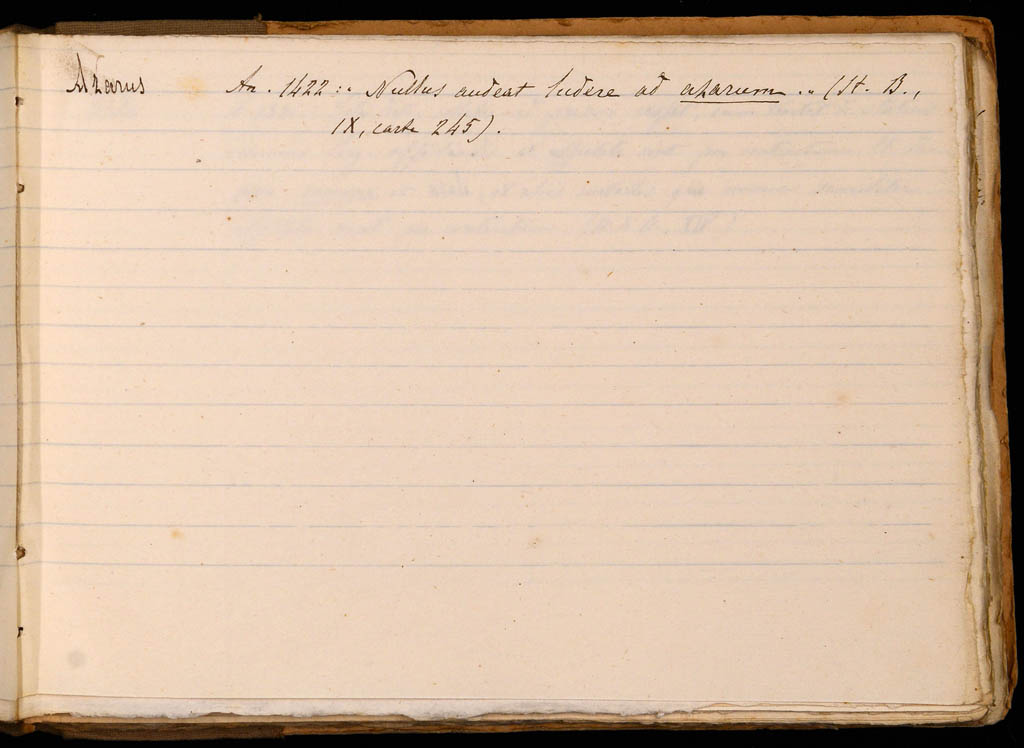 Azarus An. 1422 : " Nullus audeat ludere ad azarum .. (St. B.,
IX, carta 245).